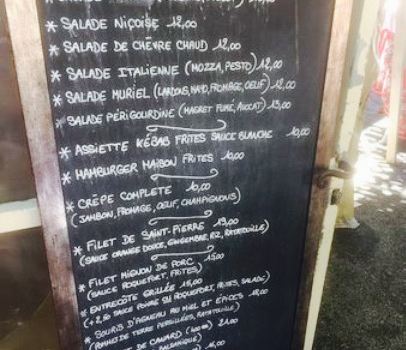 * SALADE NIÇOISE 12,00
* SALADE DE CHÈVRE CHAUD 12,00
* SALADE ITALIENNE (MOZZA, PESTO) 12,00
* SALADE MURIEL (LARDONS, MAYO, FROMAGE, OEUF) 12,00
* SALADE PÉRIGOURDINE (MAGRET FUMÉ, AVOCAT) 13,00
* ASSIETTE KÉBAB FRITES SAUCE BLANCHE 10,00
* HAMBURGER MAISON FRITES 10,00
* CRÊPE COMPLETE 10,00
(JAMBON, FROMAGE, OEUF, CHAMPIGNONS)
* FILET DE SAINT-PIERRE 19,00
(SAUCE ORANGE DOUCE, GINGEMBRE, RIZ, RATATOUILLE)
* FILET MIGNON DE PORC 15,00
(SAUCE ROQUEFORT, FRITES)
* ENTRECÔTE GRILLÉE 18,00
(+ 2,50 SAUCE POIVRE OU ROQUEFORT, FRITES, SALADE)
* SOURIS D'AGNEAU AU MIEL ET ÉPICES 18,00
DE TERRE PERSILLÉES, RATATOUILLE)
DE CANARD 21,00
BALSAMIQUE